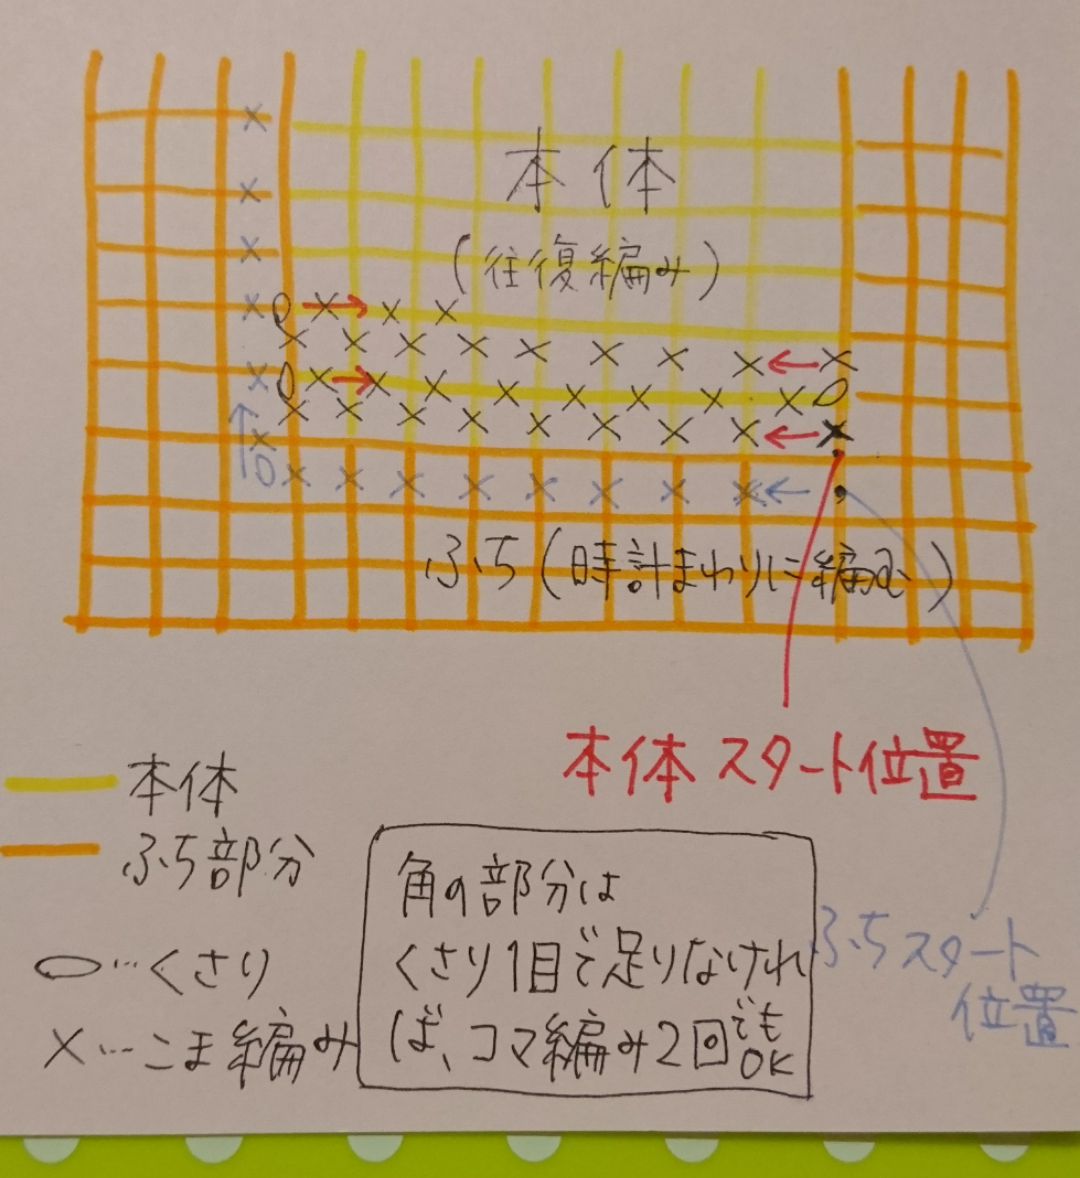 本体
(往復編み)
ふち(時計まわりに編む)
本体 スタート位置
本体
ふち部分
角の部分は
くさり1目で足りなけれ
ば、コマ編み2回でも
OK
ふちスタート
位置
○…くさり
×…こま編み